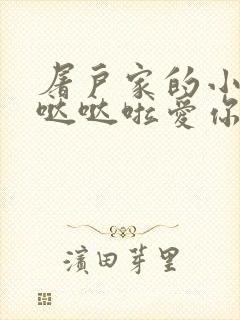 屠户家的小
哒哒啦爱你
濱田芽里